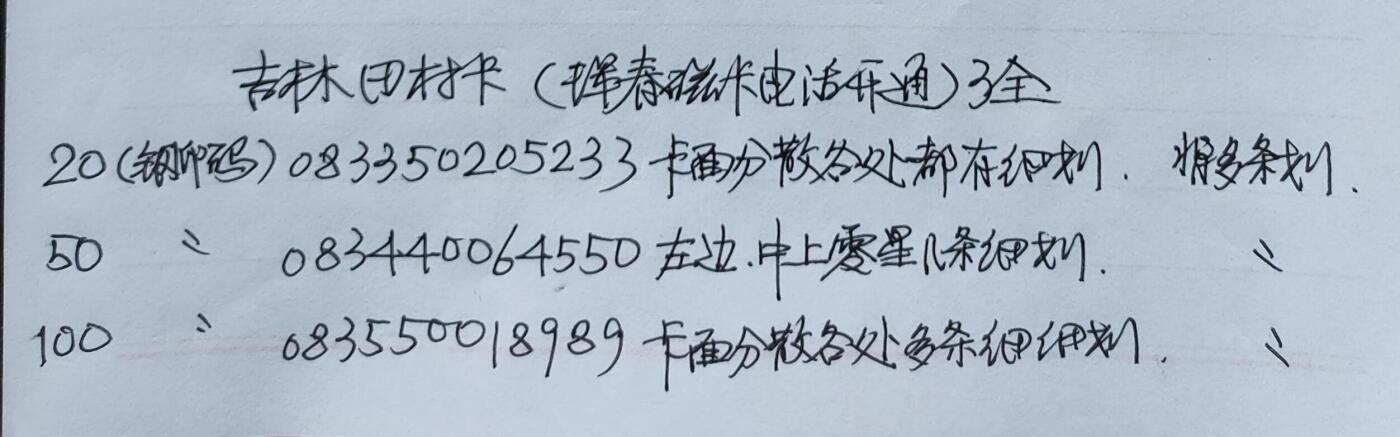 吉林田村卡(珲春磁卡电话开通)3全
20(钢印码)083350205233卡面分散各处都有细划. 背多条划.
50 〃 083440064550左边.中上零星几条细划. 〃
100 〃 083550018989卡面分散各处多条细细划. 〃